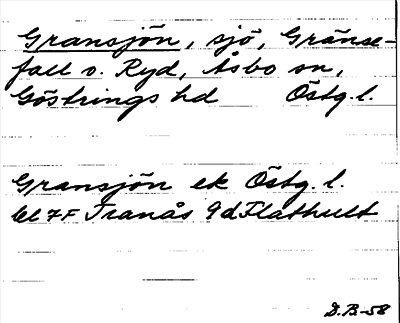 Gransjön, sjö, Gränse-
fall o. Ryd, Åsbo sn,
Göstrings hd Östg. l.
Gransjön ek Östg. l.
bl 7F Tranås 9d Flathult
D.B-58